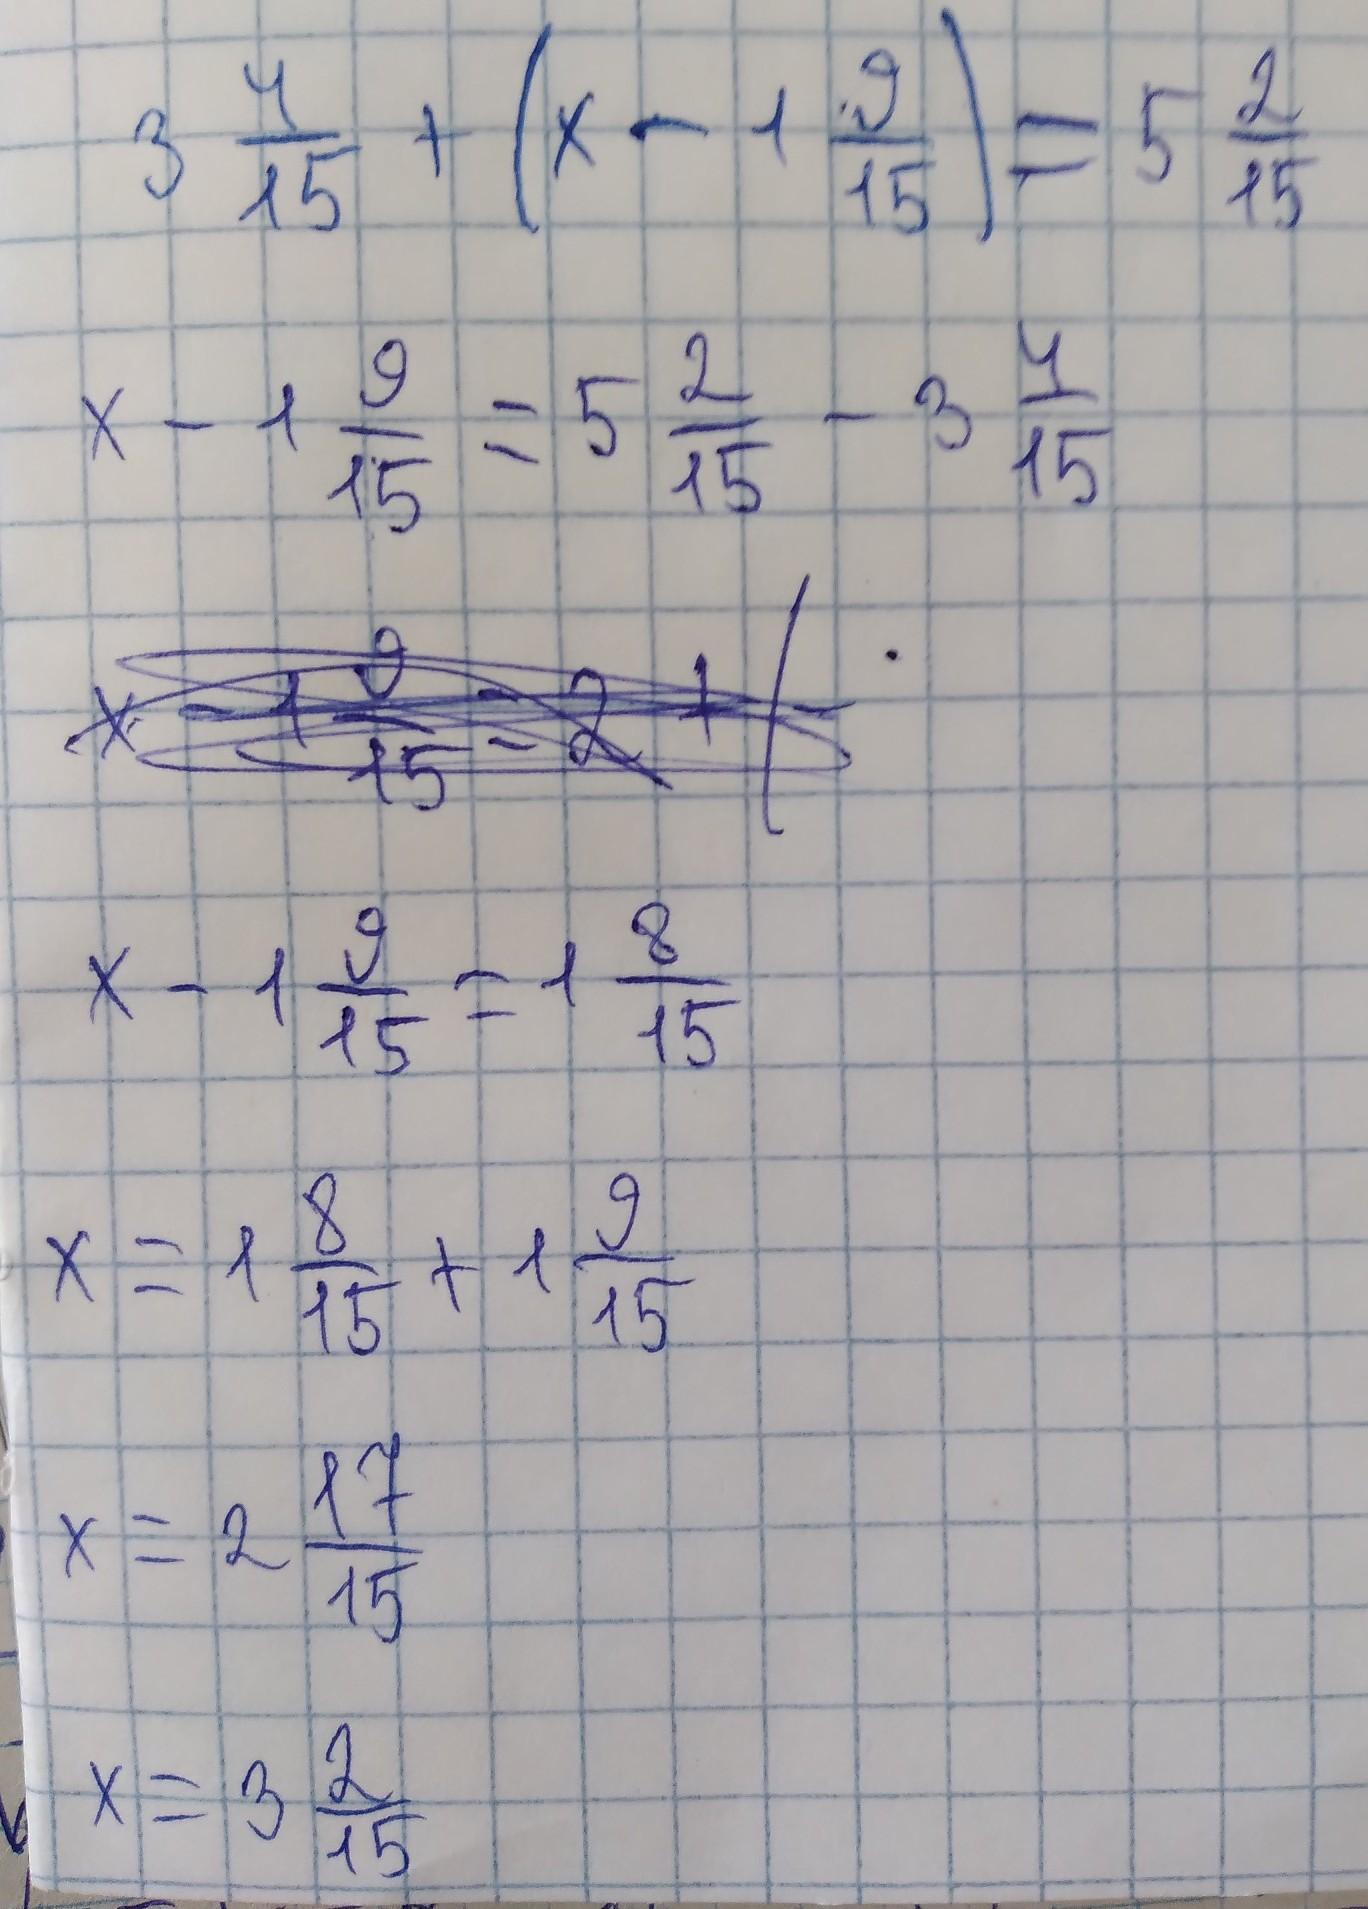 3 4/15 + (x - 1 9/15) = 5 2/15
x - 1 9/15 = 5 2/15 - 3 4/15
x - 1 9/15 = 2 + ( -
x - 1 9/15 = 1 8/15
x = 1 8/15 + 1 9/15
x = 2 17/15
x = 3 2/15